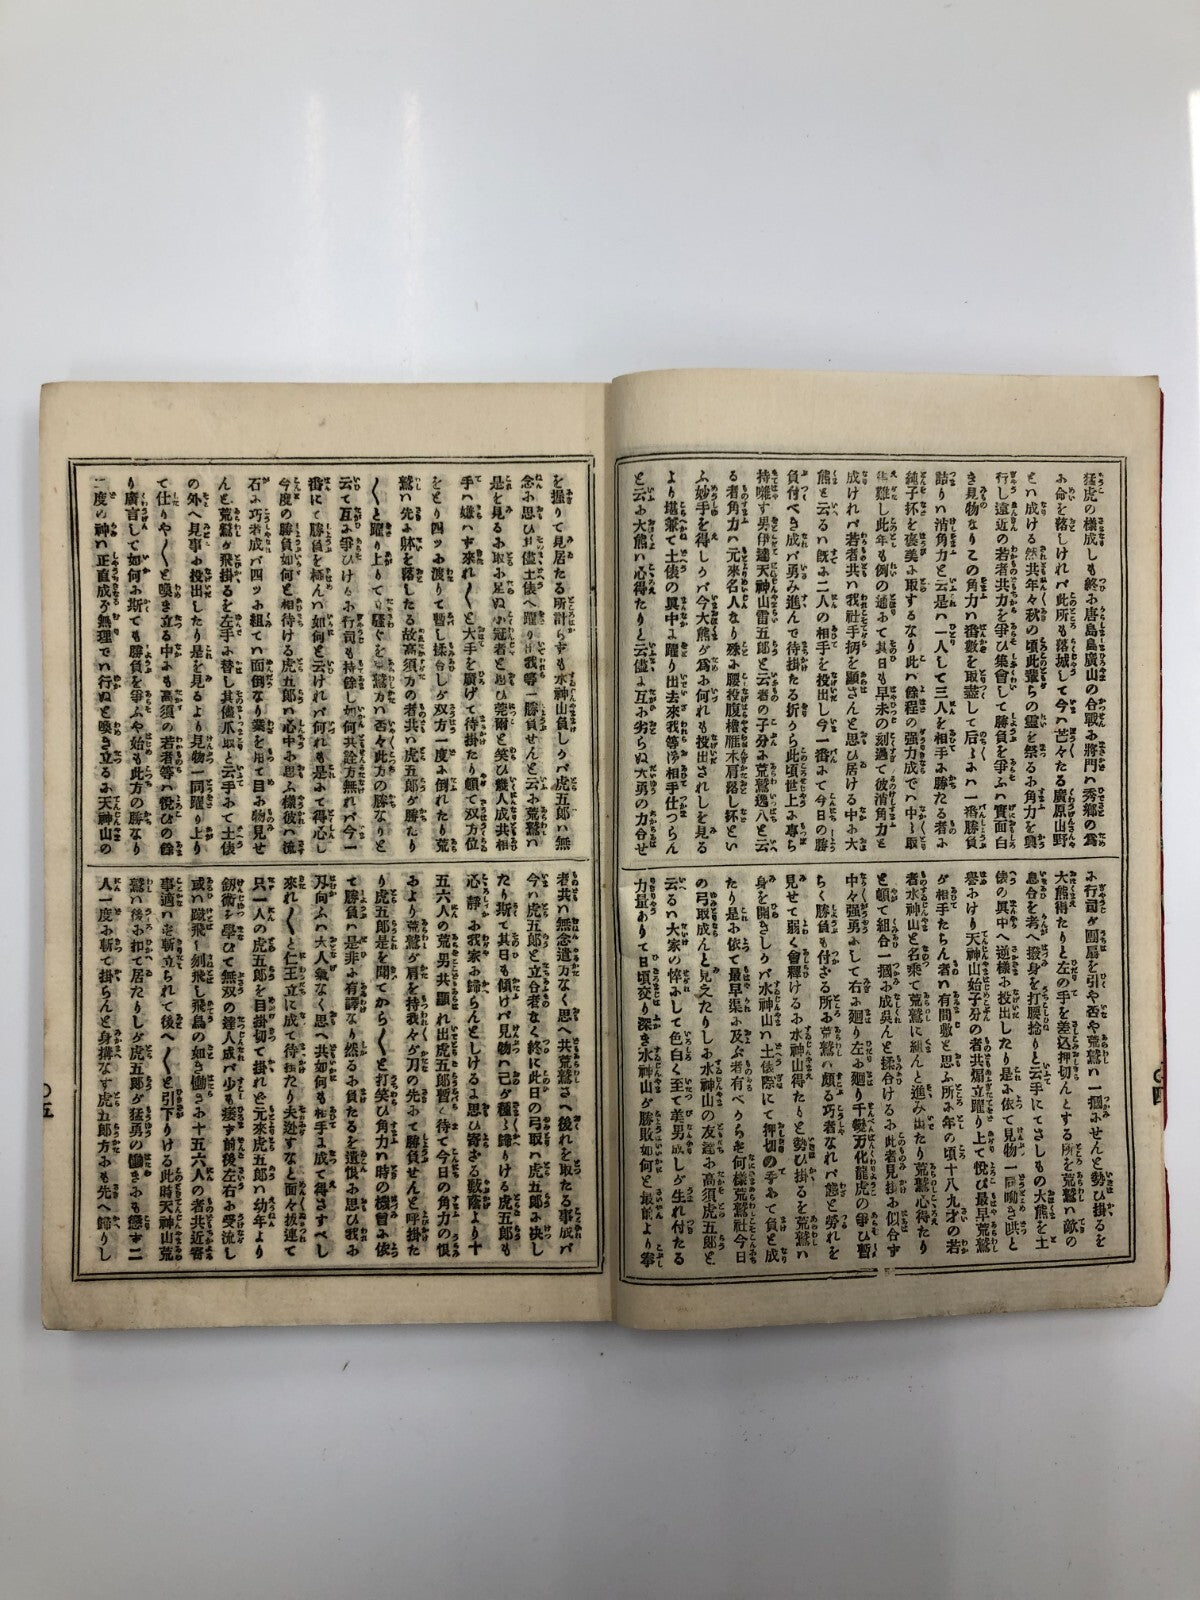 猛虎の樣成しも終に唐島廣山の合戰に將門ハ秀郷の爲
に命を落しけれバ此所も落城して今ハ茫々たる廣原山野
とハ成ける然共年々秋の頃此輩らの靈を祭るに角力を興
行し遠近の若者共力を爭ひ集會して勝負を爭ふハ實面白
き見物なりこの角力ハ番數を取盡して后ふハ一番勝負
詰り ハ消角力と云是ハ一人して三人を相手に勝たる者に
純子抔を褒美に取するなり此ハ餘程の强力成でハ中々取
得難し此年も例の通りにて其日も早未の刻過て彼消角力と
成けれバ若者共ハ我社手柄を顯さんと思ひ居ける中に大
熊と云るハ既に二人の相手を投出し今一番にて今日の勝
負付べき成バ勇み進んで待掛たる折から此頃世上に專ら
持囃す男伊達天神山雷五郎と云者の子分に荒鷲逸八と云
る者角力ハ元來名人なり殊に腰投腹櫓雁木肩落し抔とい
ふ妙手を得しかバ今大熊が爲に何れも投出されしを見る
より堪兼て土俵の眞中に躍り出去來我等 相手仕つらん
と云に大熊ハ心得たりと云儘に互に劣らぬ大勇の力合せ
に行司が團扇を引や否や荒鷲ハ一摑にせんと勢ひ掛るを
大熊得たりと左の手を差込押切んとする所を荒鷲ハ敵の
息合を考へ撥身を打腰捻りと云手にてさしもの大熊を土
俵の眞中へ逆樣に投出したり是に依て見物一同呦き哄と
譽ふけり天神山始子分の者共煽立躍り上て悅び最早荒鷲
が相手たらん者ハ有間敷と思ふ所に年の頃十八九才の若
者水神山と名乘て荒鷲に組んと進み出たり荒鷲心得たり
と頓て組合一摑に成吳んと揉合けるに此者見掛に似合ず
中々强勇にして右に廻り左に廻り千變万化龍虎の爭ひ暫
らく勝負も付ざる所に荒鷲ハ頗る巧者なれバ態と勞れを
見せて弱く會釋けるに水神山得たりと勢ひ掛るを荒鷲ハ
身を開きしかバ水神山ハ土俵際にて押切の手にて負と成
たり是に依て最早渠に及ぶ者有べからず何樣荒鷲社今日
の弓取成んと見えたりしに水神山の友達に高須虎五郎と
云るハ大家の悴にして色白く至て美男成しが生れ付たる
力量ありて日頃交り深き水神山が勝敗如何と最前より拳
〇四
を握りて見居たる所計らずも水神山負しかバ虎五郎ハ無
念に思ひ其儘土俵へ躍り出我等一勝負せんと云に荒鷲ハ
是を見るに取に足ぬ小冠者と思ひ莞爾と笑ひ幾人成共相
手ハ嫌ハず來れ〳〵と大手を廣げて待掛たり頓て双方位
をとり四ッに渡りて暫し揉合しが双方一度に倒れたり荒
鷲ハ先に躰を落したる故高須方の者共ハ虎五郎が勝たり
〳〵と躍り上りて騷ぐを鷲方ハ否々此方の勝なりと
云て互に爭ひけるに行司も持餘し如何共詮方無れバ今一
番にて勝負を極んハ如何と云けれバ何れも是にて得心し
今度の勝負如何と相待ける虎五郎ハ心中に思ふ樣彼ハ流
石に巧者成バ四ッに組てハ面倒なり業を用て目に物見せ
んと荒鷲が飛掛るを左手に替し其儘爪取と云手にて土俵
の外へ見事に投出したり是を見るより見物一同躍り上り
て仕りや〳〵と喚き立る中にも高須の若者等ハ悅びの餘
り廣言して如何に斯ても勝負を爭ふや始も此方の勝なり
二度の神ハ正直成ぞ無理でハ行ぬと喚き立るに天神山の
者共ハ無念遣方なく思へ共荒鷲さへ後れを取たる事成バ
今ハ虎五郎と立合者なく終に此日の弓取ハ虎五郎に决し
たり斯て其日も傾けバ見物ハ己が種々歸りける虎五郎も
心靜に我家に歸らんとしけるに思ひ寄ざる藪蔭より十
五六人の荒男共顯れ出虎五郎暫く待て今日の角力の恨
により荒鷲が肩を持我々が刀の先にて勝負せんと呼掛た
り虎五郎是を聞てから〳〵と打笑ひ角力ハ時の機會に依
て勝負ハ是非に有譯なり然るに負たるを遺恨に思ひ我に
刃向ふハ大人氣なく思へ共如何にも相手に成て得さすべし
來れ〳〵と仁王立に成て待掛たり夫迯すなと面々拔連て
只一人の虎五郎を目掛切て掛れと元來虎五郎ハ幼年より
劍術を學びて無双の達人成バ少も痿ず前後左右に受流し
或ハ蹴飛し刎飛し飛鳥の如き働きに十五六人の者共近寄
事適ハず斬立られて後へ〳〵と引下りける此時天神山荒
鷲ハ後に扣へて居たりしが虎五郎が猛勇の働きにも懲ず二
人一度に斬て掛らんと身搆なす虎五郎方にも先へ歸りし
〇五